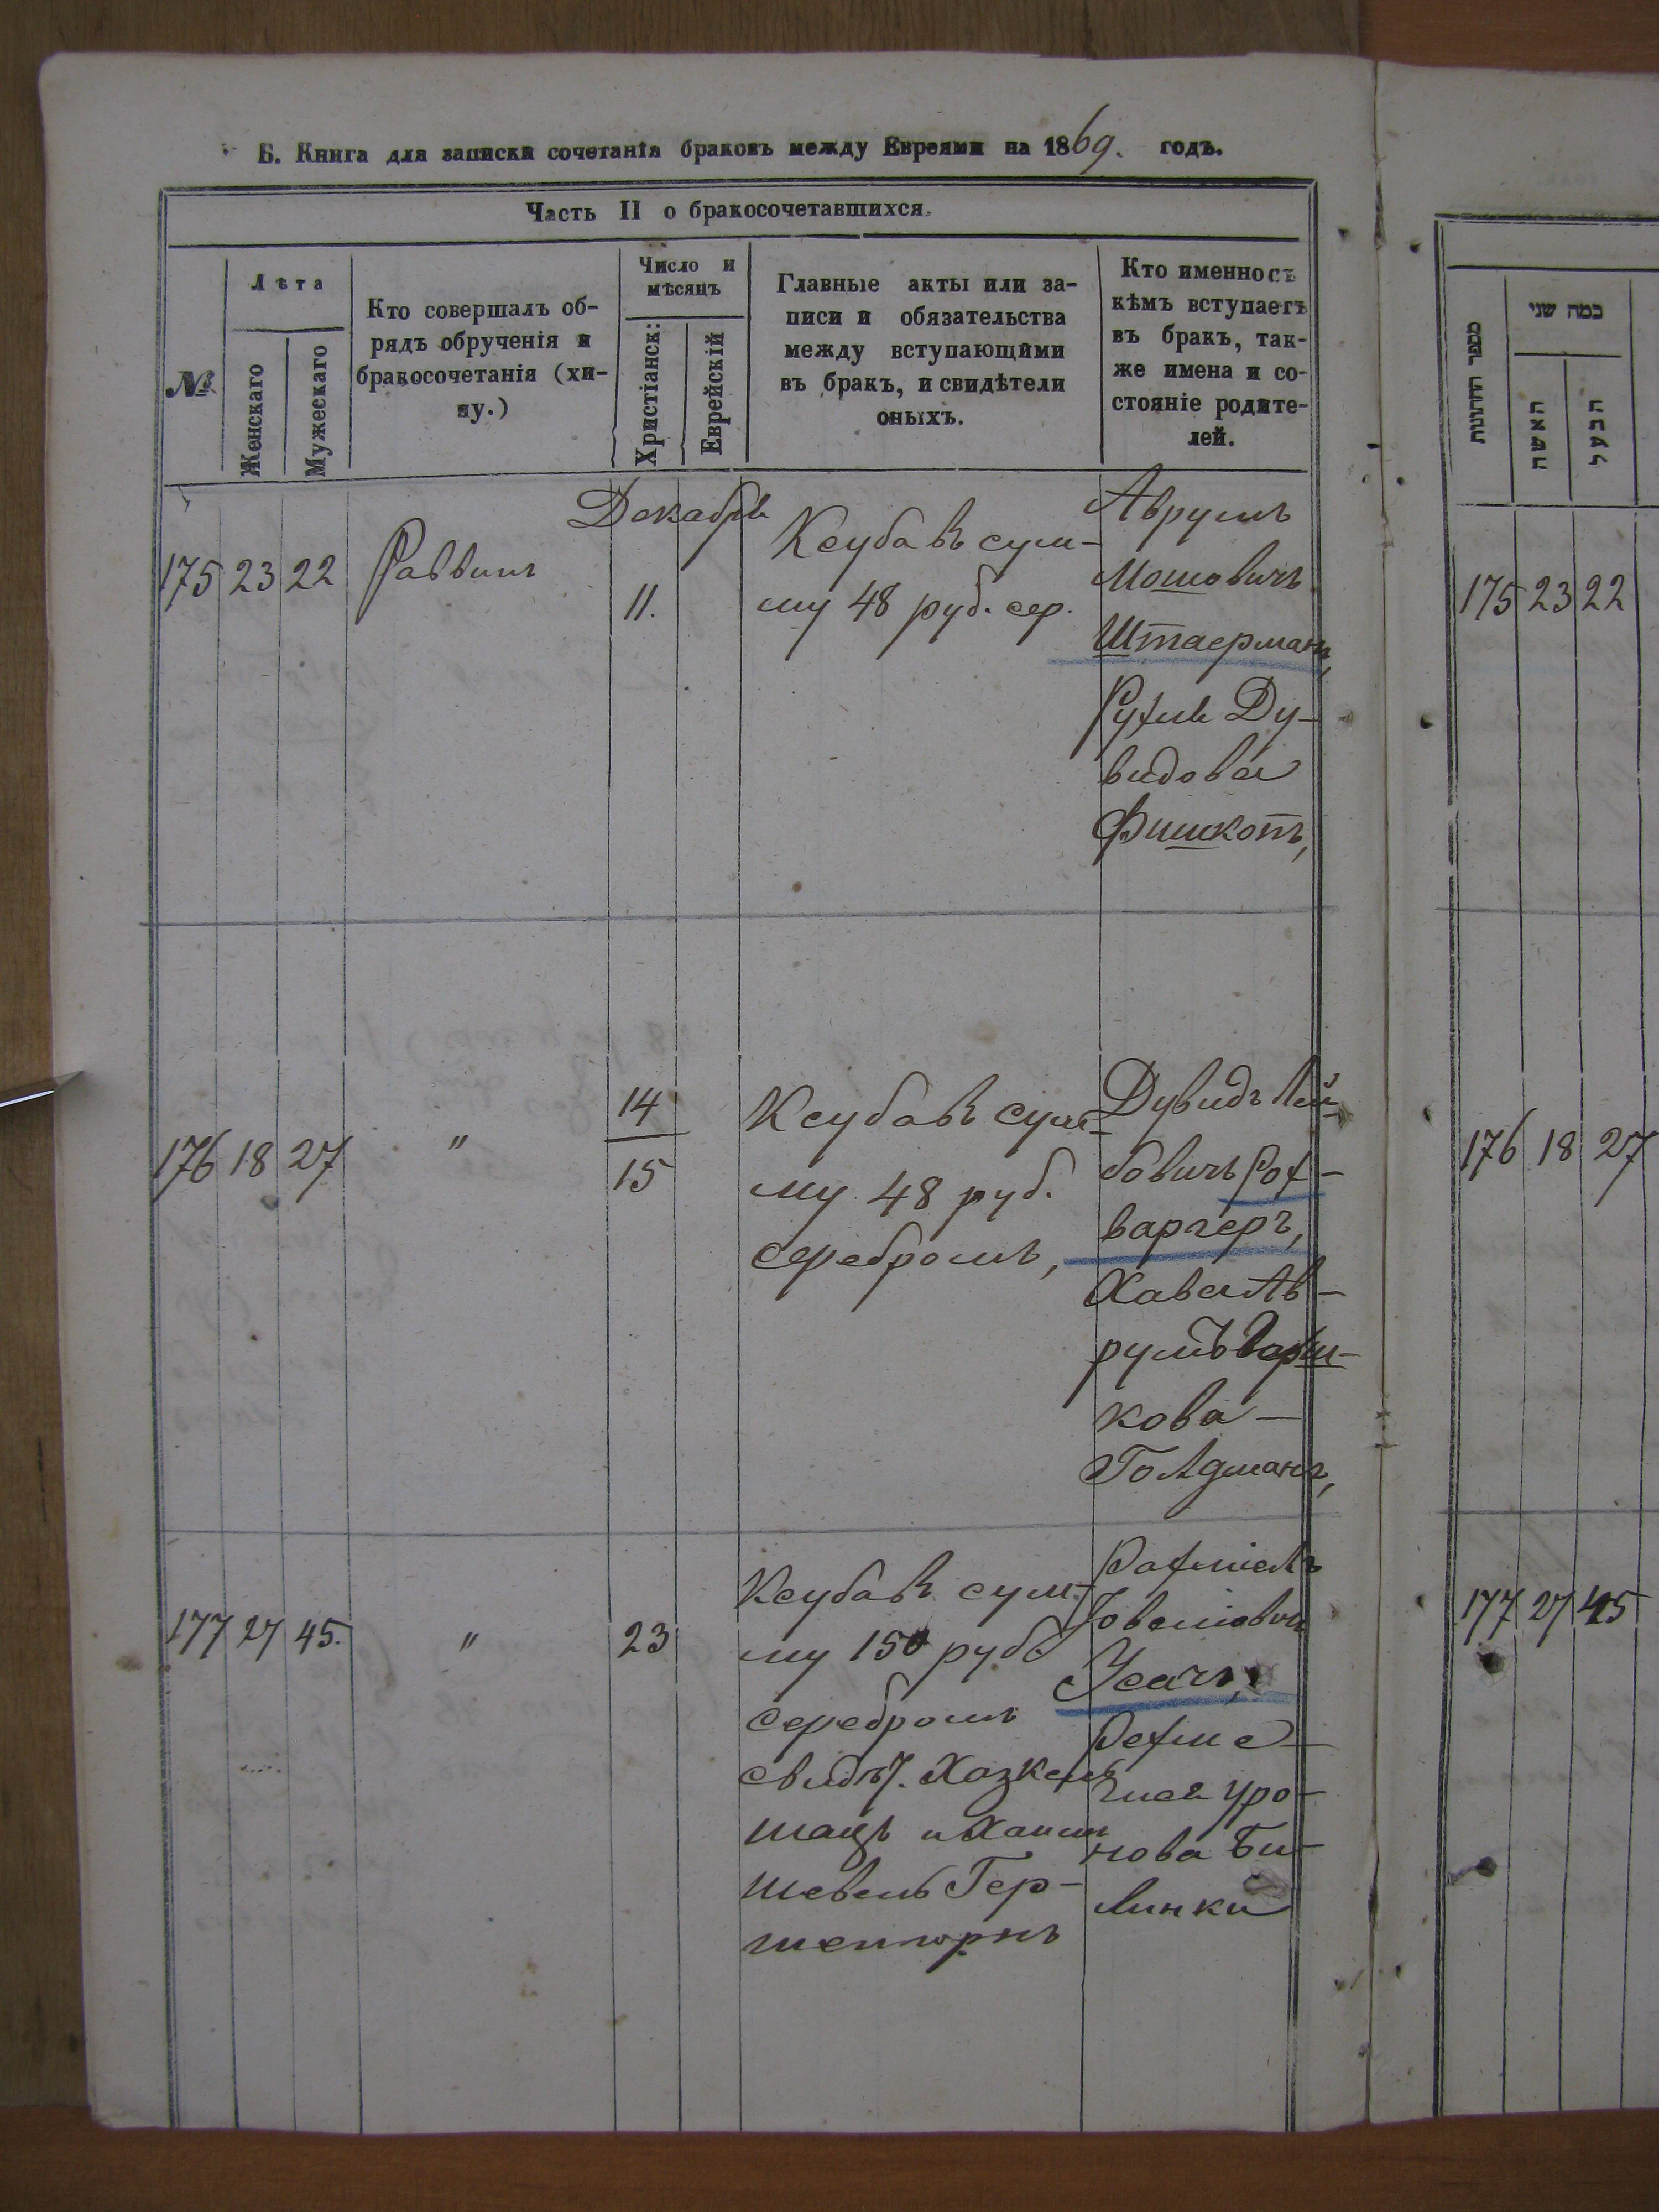 Б. Книга для записки сочетанія браковъ между Евреями на 1869. годъ.
Часть II о бракосочетавшихся.
№
Лѣта
Женскаго
Мужескаго
Кто совершалъ об-
рядъ обрученія и
бракосочетанія (хи-
пу.)
Число и
мѣсяцъ
Христіанск:
Еврейскій
Главные акты или за-
писи и обязательства
между вступающими
въ бракъ, и свидѣтели
оныхъ.
Кто именно съ
кѣмъ вступаетъ
въ бракъ, так-
же имена и со-
стояніе родите-
лей.
175 23 22 Раввинъ
Декабрь
11.
Ксуба въ сум-
му 48 руб. сер.
Аврумъ
Мошовичъ
Штаерманъ,
Рухль Ду-
видова
Фишкопъ,
176 18 27 "
14
15
Ксуба въ сум-
му 48 руб.
серебромъ,
Дувидъ Лей-
бовичъ Рох-
варгеръ,
Хава Ав-
румъ
кова —
Голдманъ,
177 27 45. " 23
Ксуба въ сум-
му 150 руб
серебромъ
Хаскель
Шацъ и Хаимъ
Шевель Гер-
Рахміель
Усачъ,
нова Би-
линки
מספר החתונות
כמה שני
האשה
הבעל
175 23 22
176 18 27
177 27 45